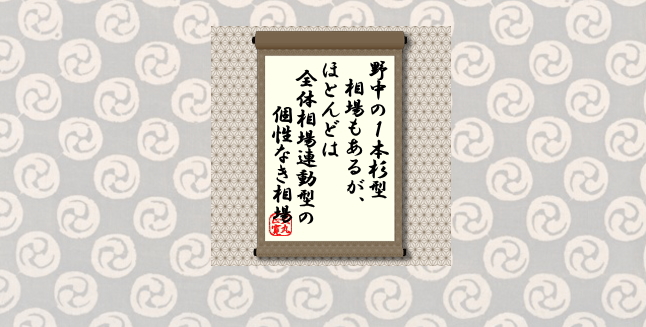 野中の1本杉型
相場もあるが、
ほとんどは
全体相場連動型の
個性なき相場